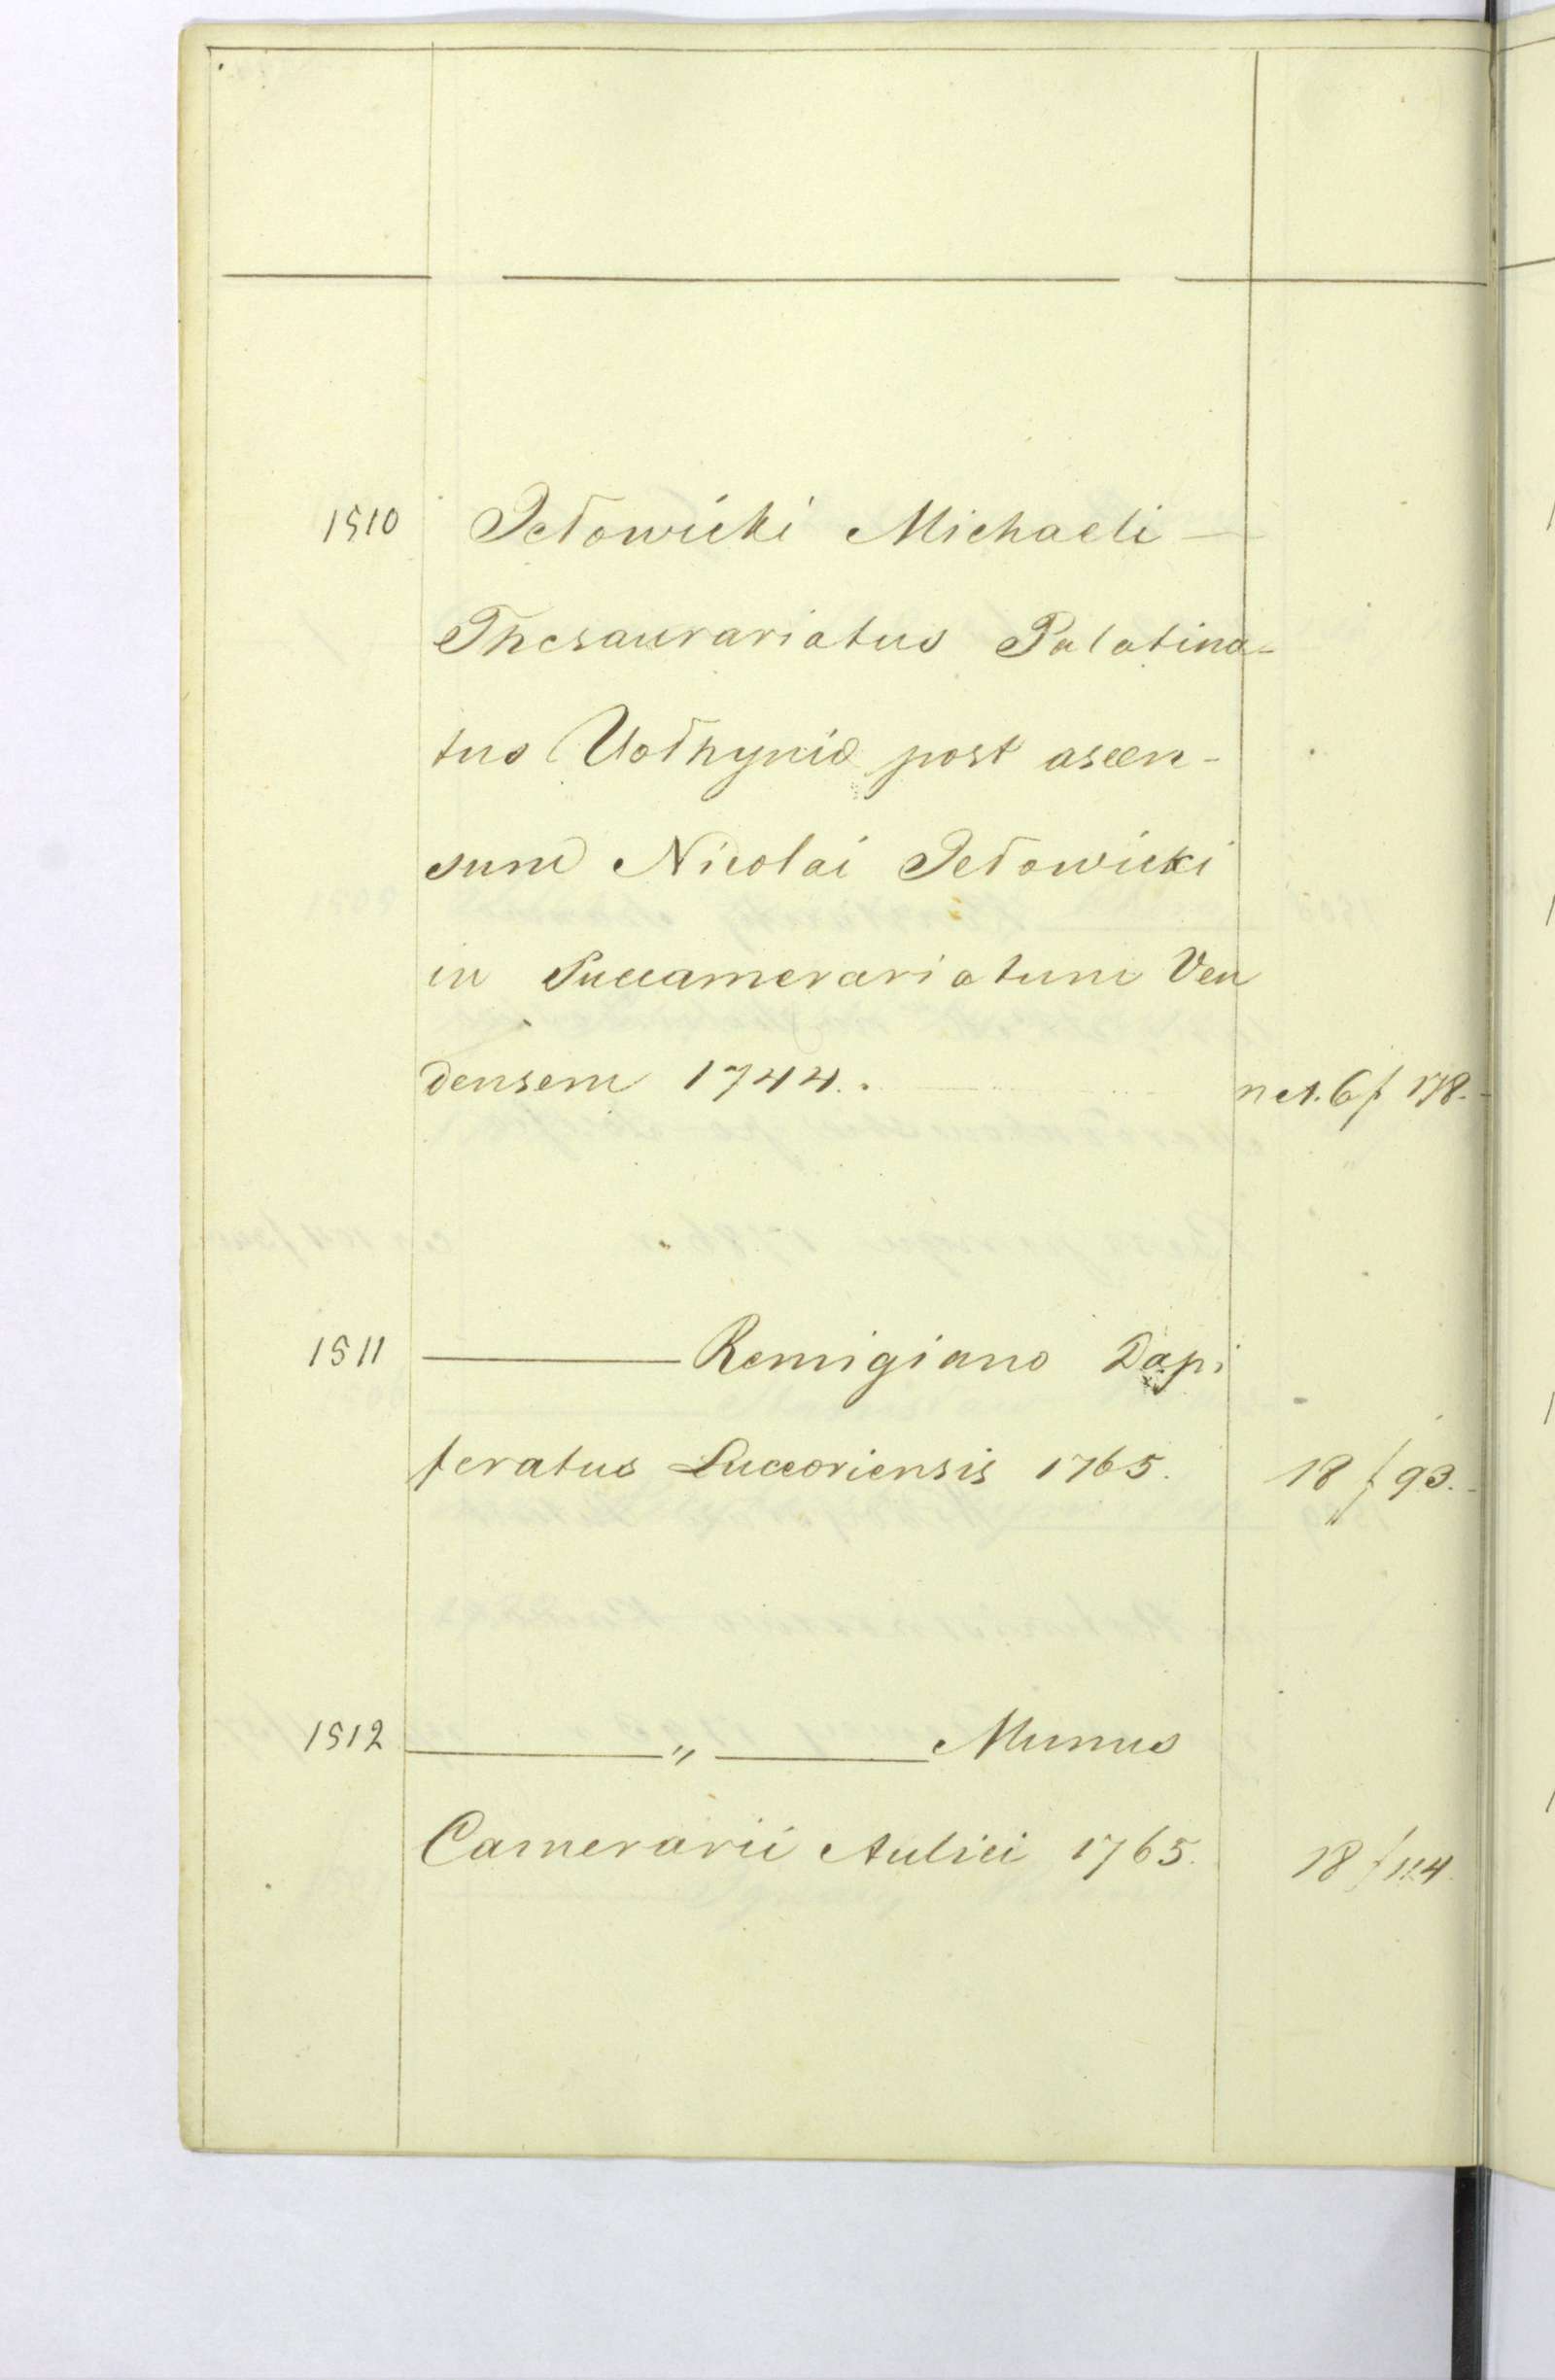 1510 Jełowicki Michaeli —
Thesaurariatus Palatina-
tus Wołhyniæ post ascen-
sum Nicolai Jełowicki
in Succamerariatum Ven
densem 1744. . net. 6 f 178. -
1511 ——— Remigiano Dapi
feratus Luceoriensis 1765. 18 f 93. -
1512 ——— „ ——— Munus
Camerarii Aulici 1765. 18 f 114